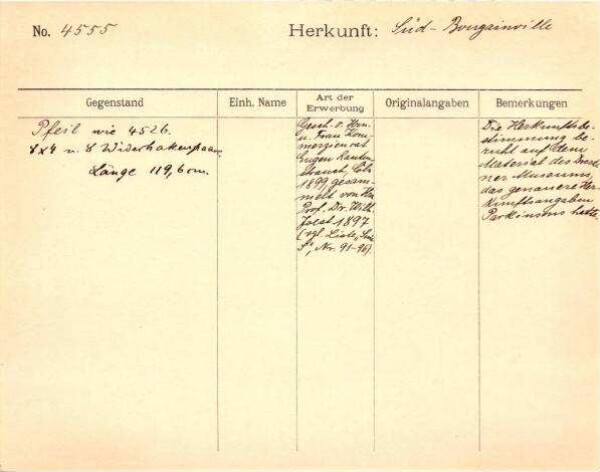 No. 4555
Herkunft: Süd-Bougainville
Gegenstand
Einh. Name
Art der Erwerbung
Originalangaben
Bemerkungen
Pfeil wie 4526.
4x4 u. 8 Widerhakenpaare
Länge 119,6 cm.
Gesch. v. Hrn.
u. Frau Kom-
merzienrat
Eugen Rauten-
strauch, Cöln
1899, gesam-
melt von Hn
Prof. Dr. Wilh.
Joest 1897
(vgl. Liste,
Nr. 91-96).
Die Herkunftsbe-
stimmung be-
ruht auf dem
Material des Dresd-
ner Museums,
das genauere Her-
kunftsangaben
Parkinsons hatte.